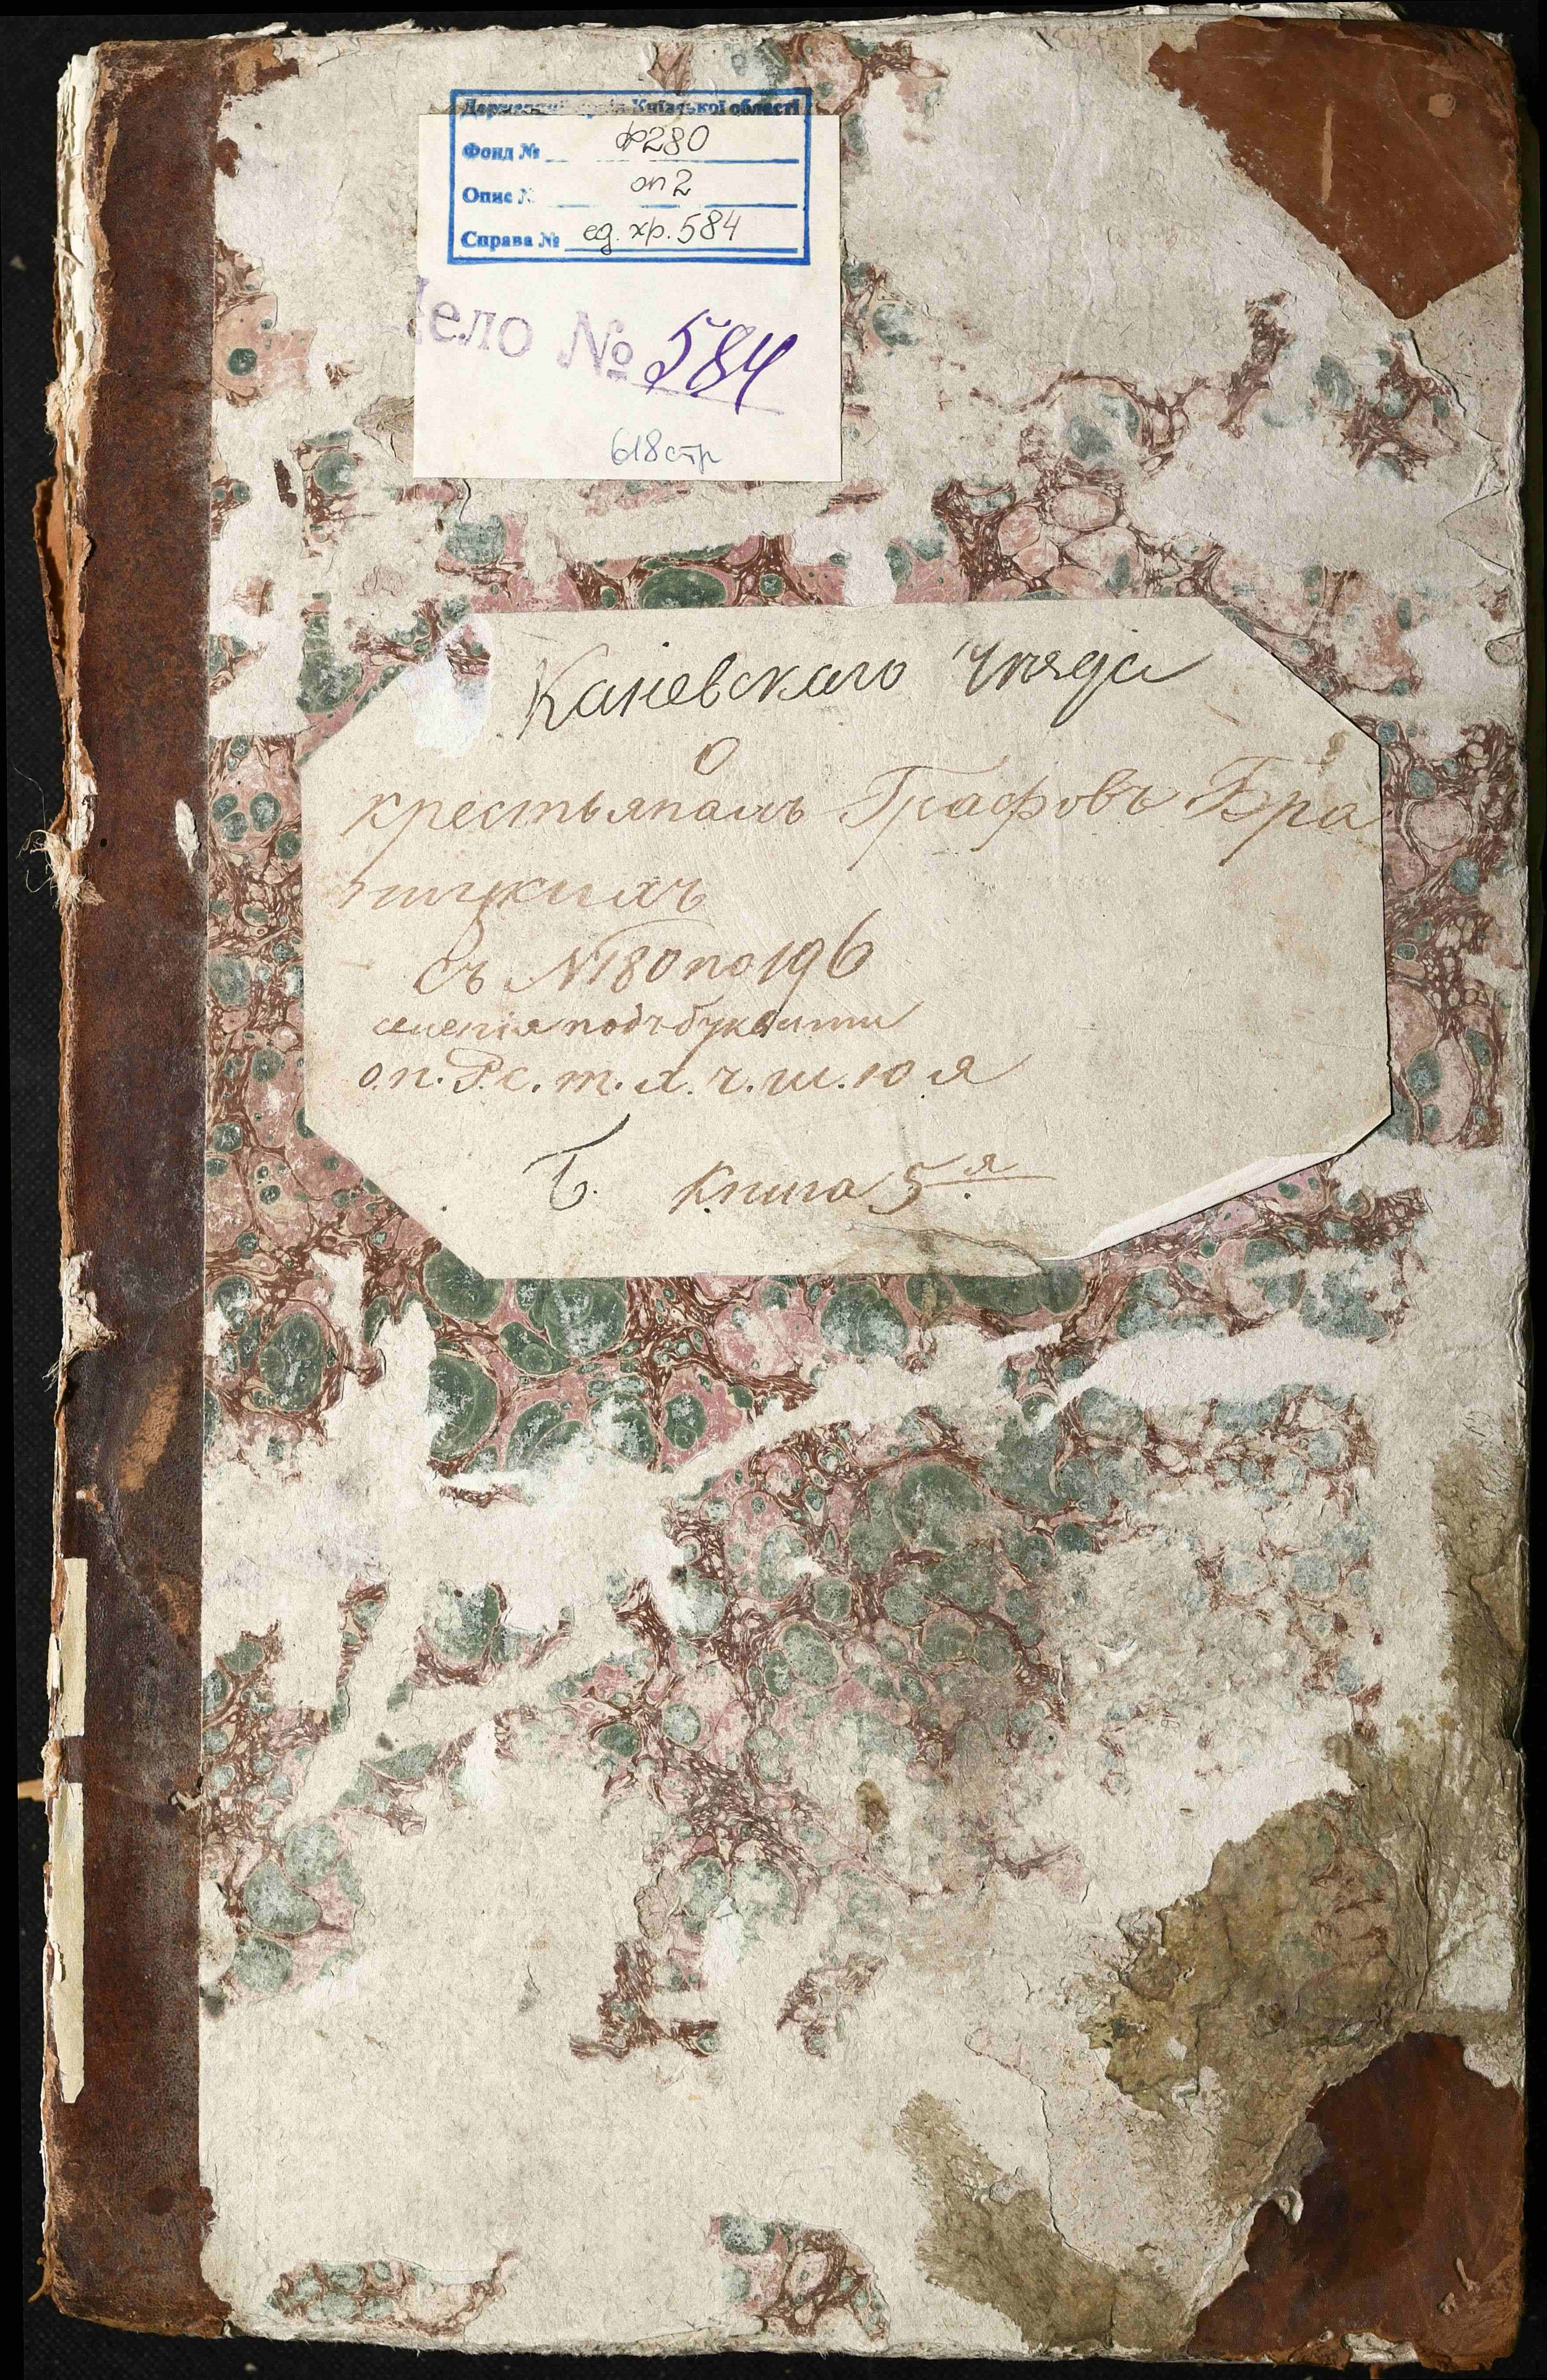 Державний архів Київської області
Фонд № ф280
Опис № оп 2
Справа № ед. хр. 584
ело № 584
618 стр
Каневскаго Уѣзда
О
крестьянахъ Графовъ Бра
ницкихъ
съ № 180 по 196
имѣнія подъ буквами
о. п. Р. с. т. х. ч. ш. ю я
Б. Книга 5 я